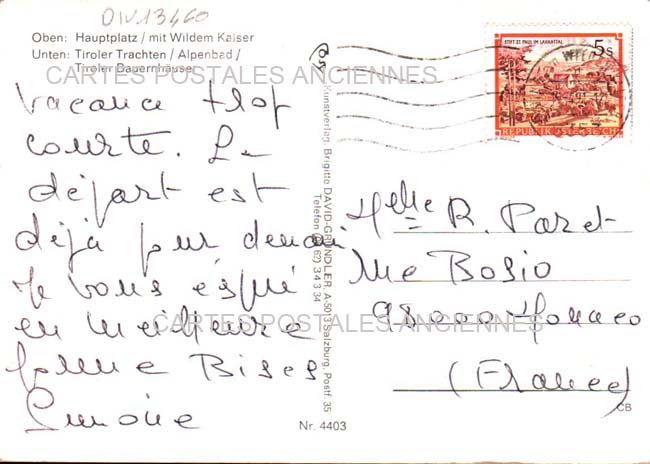 DIV13460
Oben: Hauptplatz / mit Wildem Kaiser
Unten: Tiroler Trachten / Alpenbad /
Tiroler Bauernhäuser
CARTES POSTALES ANCIENNES
Vacance trop
courte. Le
départ est
déjà pour demain
Je vous espère
en meilleure
forme Bises
Simone
Kunstverlag Brigitte DAVID-GRÜNDLER, A-5013 Salzburg, Postf. 35
Telefon (0 62) 34 3 34
STIFT ST. PAUL IM LAVANTTAL
5 S
REPUBLIK ÖSTERREICH
Melle R. Paret
Rue Bosio
98000 Monaco
(France)
CARTES POSTALES ANCIENNES
Nr. 4403
CB